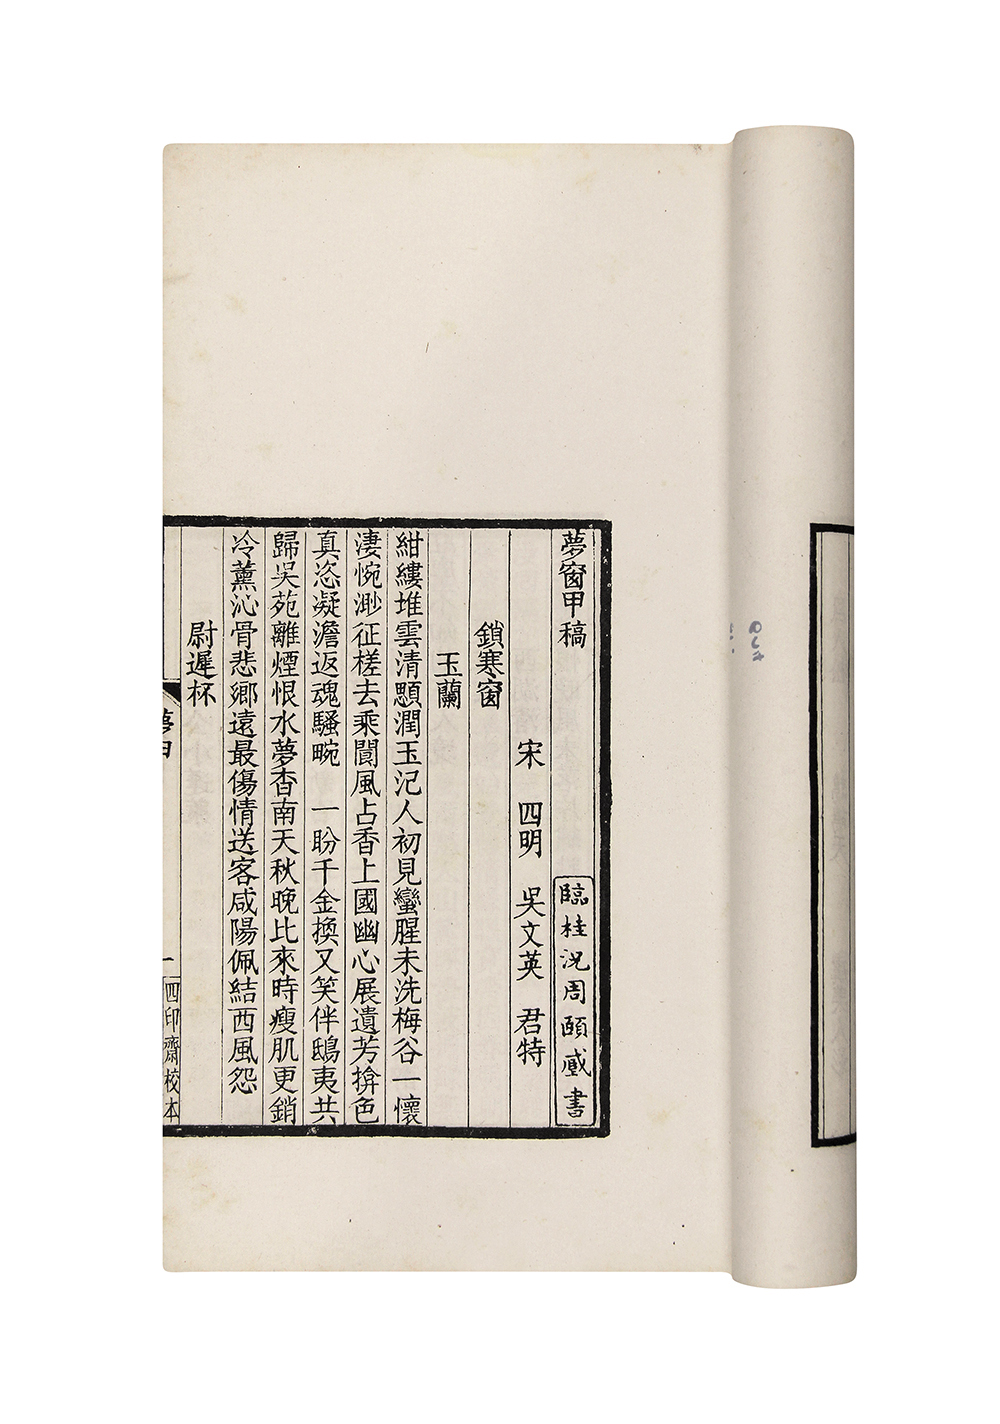 夢窗甲稿
臨桂況周頤臧書
宋 四明 吳文英 君特
鎖寒窗
玉蘭
紺縷堆雲清顋潤玉氾人初見蠻腥未洗梅谷一懷
淒惋渺征槎去乘閬風占香上國幽心展遺芳揜色
真恣凝澹返魂騷畹 一盼千金換又笑伴鴟夷共
歸吳苑離煙恨水夢杳南天秋晚比來時瘦肌更銷
冷薰沁骨悲鄉遠最傷情送客咸陽佩結西風怨
尉遲杯
夢甲
一
四印齋校本